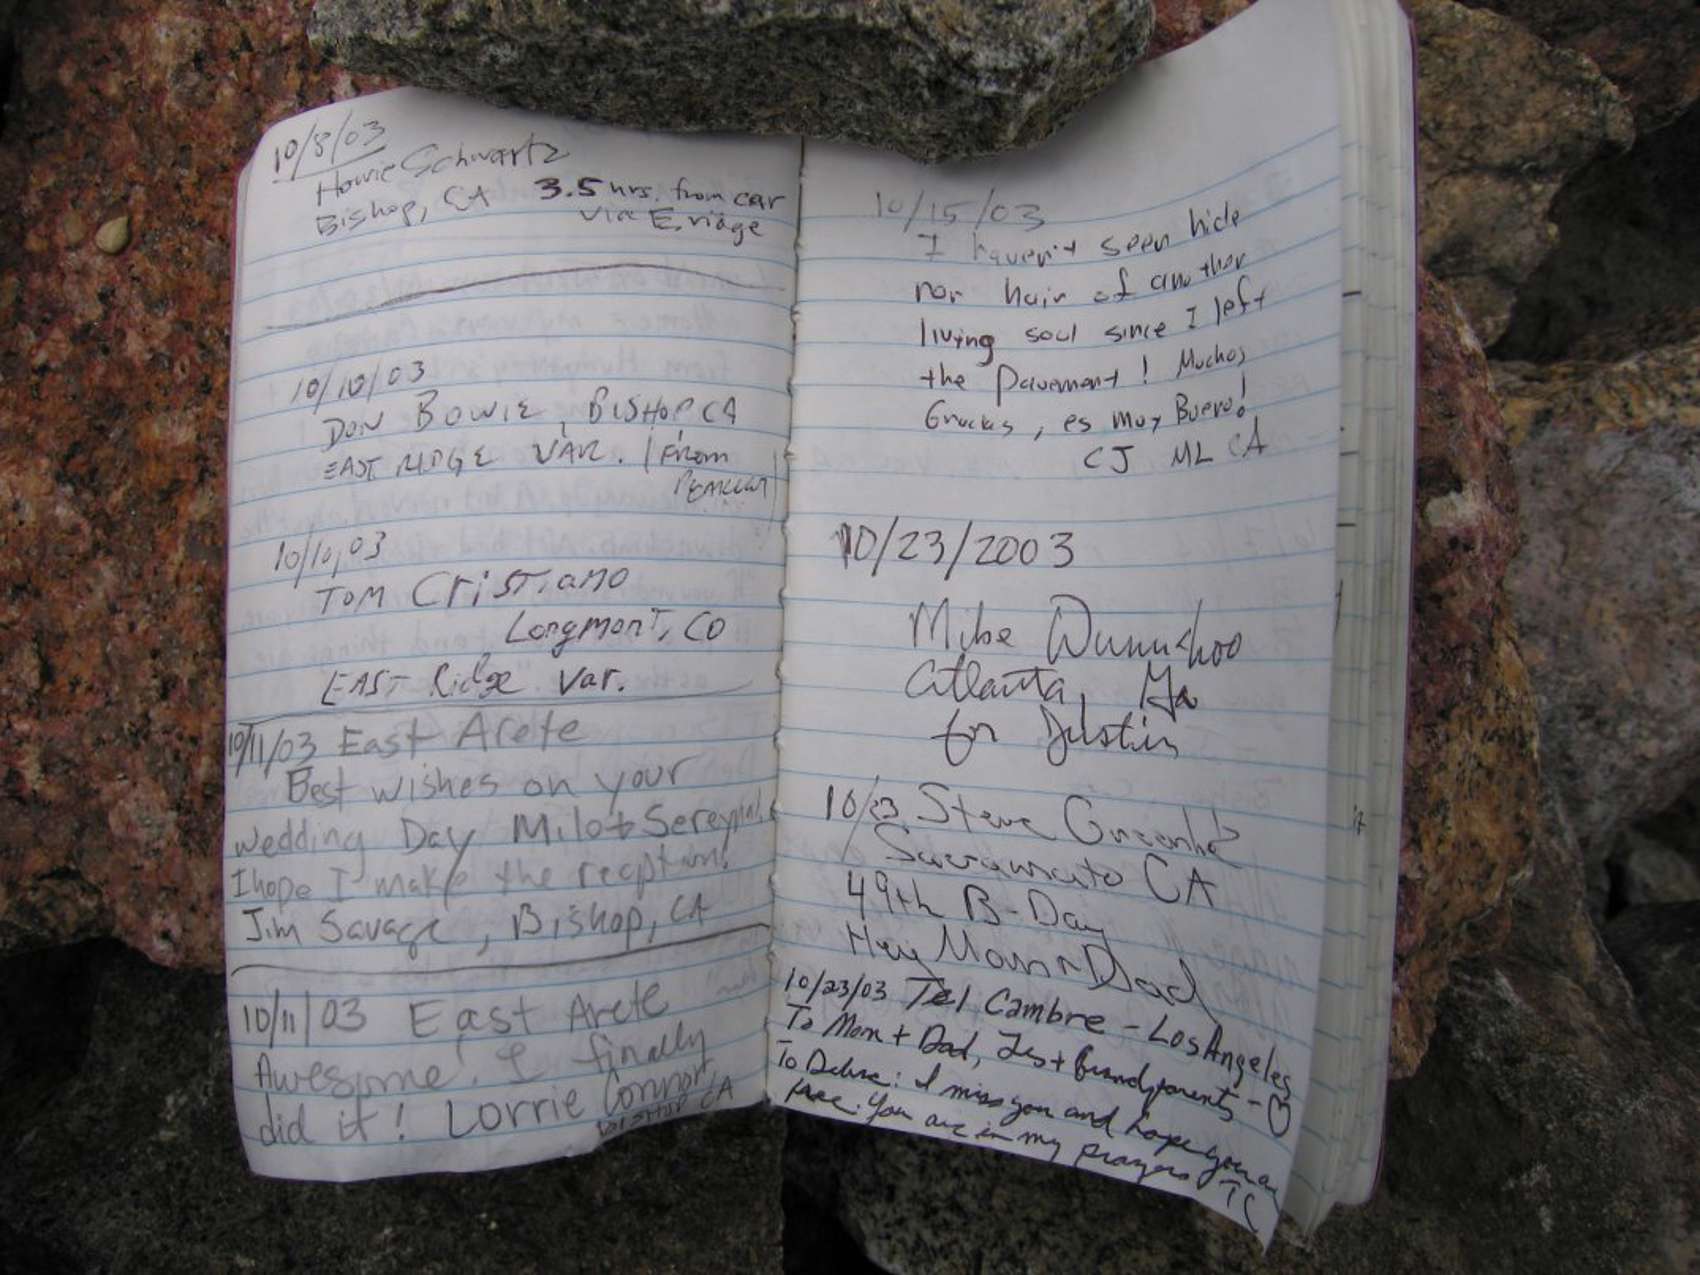 10/8/03
Howie Schwartz
Bishop, CA 3.5 hrs. from car
via E ridge
10/10/03
DON BOWIE, BISHOP, CA
EAST RIDGE VAR. (FROM
10/10,03
TOM Cristiano
Longmont, CO
EAST Ridge Var.
10/11/03 East Arete
Best wishes on your
wedding Day Milo +
I hope I make the
Jim Savage, Bishop, CA
10/11/03 East Arete
Awesome! I finally
did it! Lorrie
BISHOP CA
10/15/03
I haven't seen hide
nor hair of another
living soul since I left
the pavement! Muchos
Gracias, es muy Bueno!
CJ ML CA
10/23/2003
Mike
Atlanta, Ga
for Dustin
10/23 Steve
Sacramento CA
49th B-Day
Hey Mom n Dad
10/23/03 Cambre - Los Angeles
To Mom + Dad, + Grandparents - ♡
To : I miss you and hope you
. You are in my prayers TC